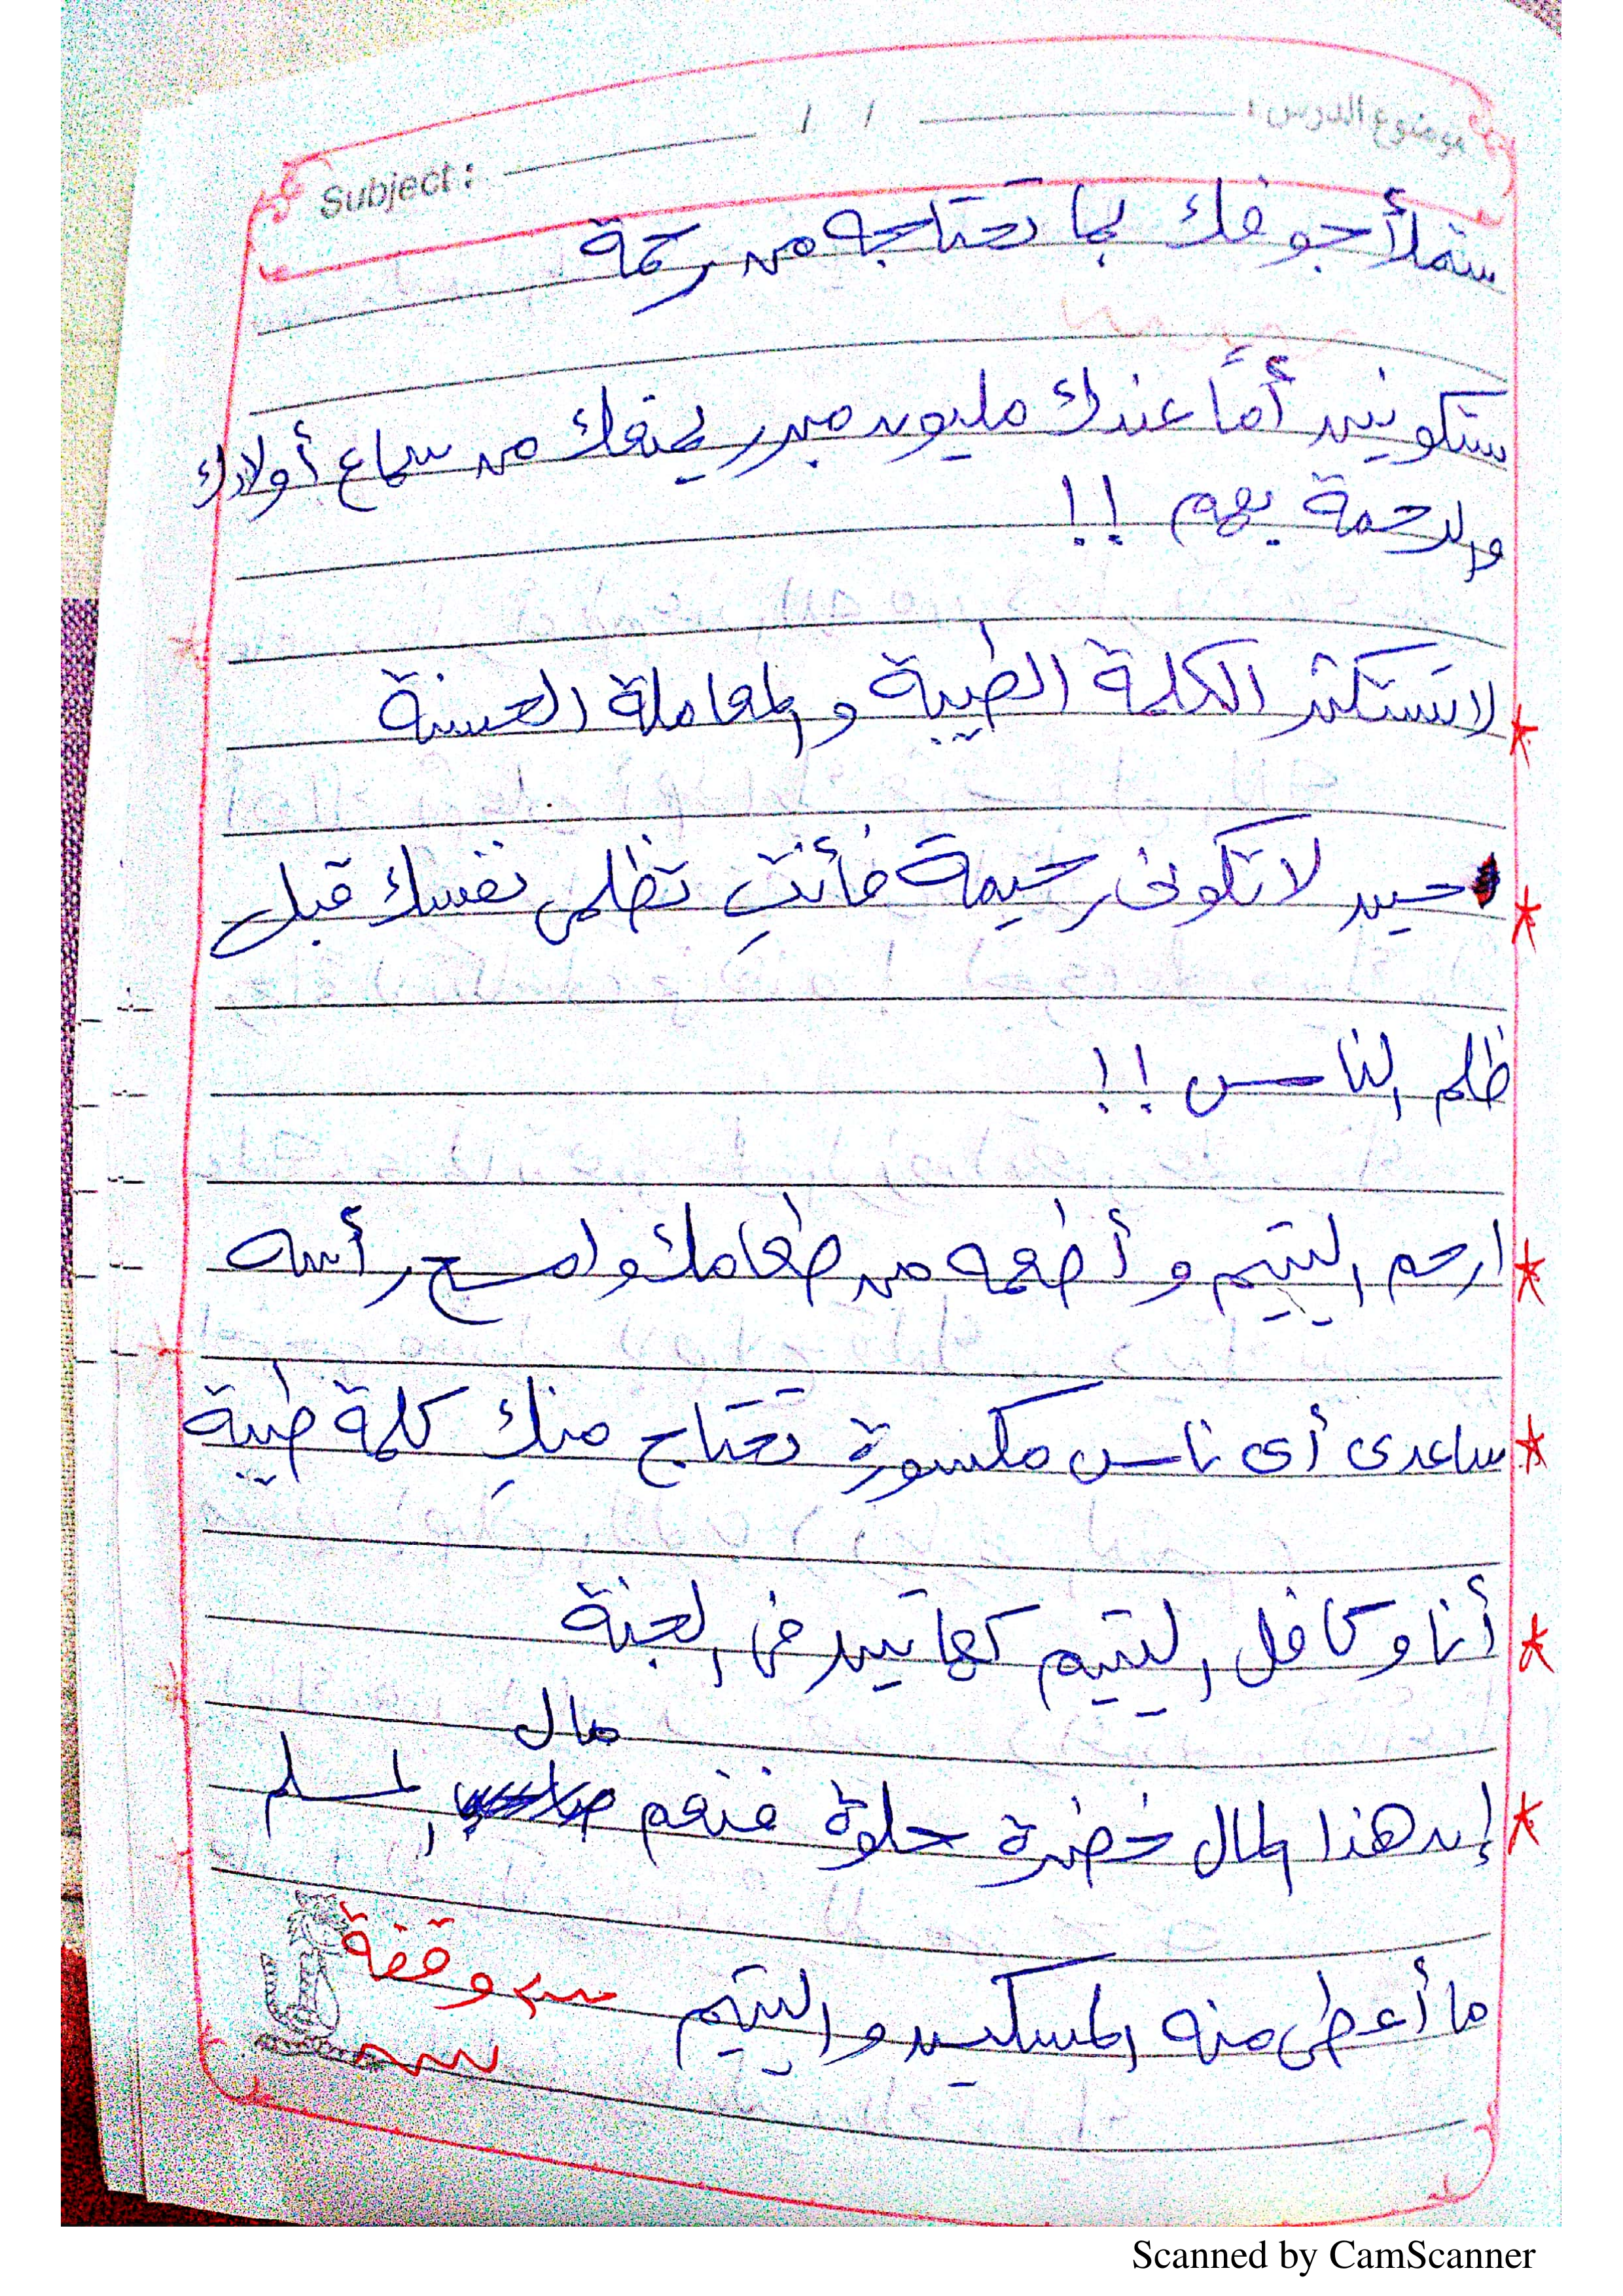 موضوع الدرس : / /
Subject :
ستملأ جوفك بما تحتاجه من رحمة
ستكونين أمًا عندك مليون مبرر يمنعك من سماع أولادك
والرحمة بهم !!
* لا تستكثر الكلمة الطيبة والمعاملة الحسنة
* حين لا تكونى رحيمة فأنتِ تظلمى نفسك قبل
ظلم الناس !!
* ارحم اليتيم وأطعمه من طعامك وامسح رأسه
* ساعدى أى ناس مكسورة تحتاج منكِ كلمة طيبة
* أنا وكافل اليتيم كهاتين فى الجنة
* إن هذا المال خضرة حلوة فنعم مال المسلم
ما أعطى منه المسكين واليتيم
وقفة
Scanned by CamScanner